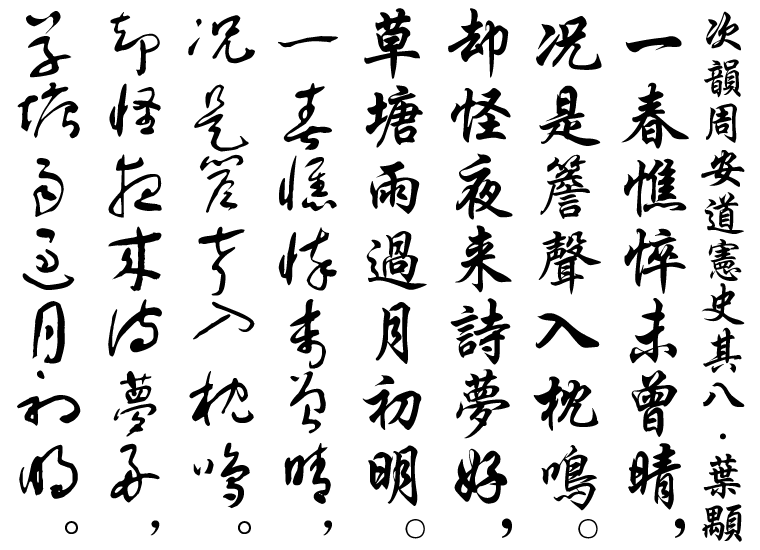 次韻周安道憲史其八·葉顒
一春憔悴未曾晴，
况是簷聲入枕鳴。
却怪夜来詩夢好，
草塘雨過月初明。
一春憔悴未曾晴，
况是簷聲入枕鳴。
却怪夜来詩夢好，
草塘雨過月初明。